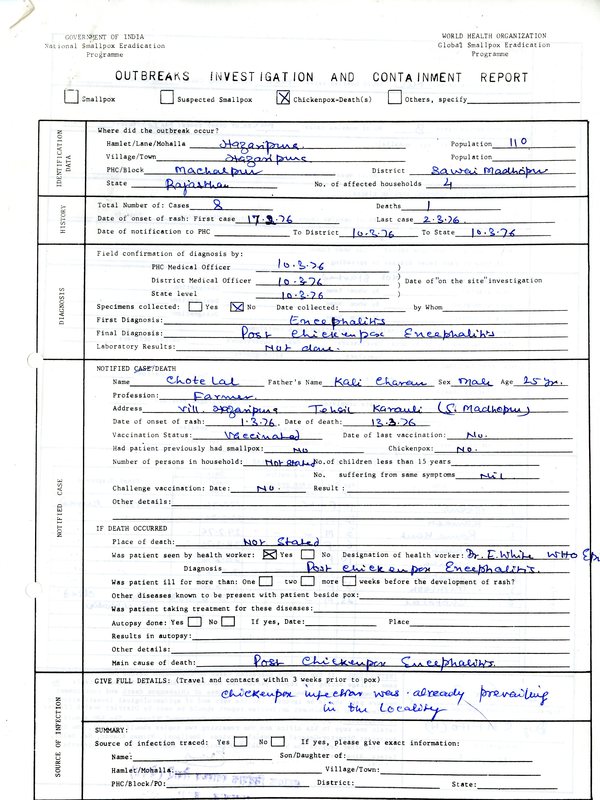 GOVERNMENT OF INDIA
National Smallpox Eradication
Programme
WORLD HEALTH ORGANIZATION
Global Smallpox Eradication
Programme
OUTBREAKS INVESTIGATION AND CONTAINMENT REPORT
Smallpox Suspected Smallpox Chickenpox-Death(s) Others, specify
IDENTIFICATION DATA
Where did the outbreak occur?
Hamlet/Lane/Mohalla Hazaripura Population 110
Village/Town Hazaripura Population
PHC/Block Machalpur District Sawai Madhopur
State Rajasthan No. of affected households 4
HISTORY
Total Number of: Cases 8 Deaths 1
Date of onset of rash: First case 17.2.76 Last case 2.3.76.
Date of notification to PHC To District 10.3.76 To State 10.3.76
DIAGNOSIS
Field confirmation of diagnosis by:
PHC Medical Officer 10.3.76 )
District Medical Officer 10.3.76 ) Date of "on the site" investigation
State level 10.3.76 )
Specimens collected: Yes No Date collected: by Whom
First Diagnosis: Encephalitis
Final Diagnosis: Post Chickenpox Encephalitis
Laboratory Results: Not done.
NOTIFIED CASE
NOTIFIED CASE/DEATH
Name Chote Lal Father's Name Kali Charan Sex Male Age 25 yr.
Profession: Farmer.
Address Vill. Hazaripura Tehsil Karauli (S. Madhopur)
Date of onset of rash: 1.3.76. Date of death: 13.3.76
Vaccination Status: Vaccinated Date of last vaccination: No.
Had patient previously had smallpox: No Chickenpox: No.
Number of persons in household: Not Stated No. of children less than 15 years
No. suffering from same symptoms Nil
Challenge vaccination: Date No. Result:
Other details:
IF DEATH OCCURRED
Place of death: Not Stated
Was patient seen by health worker: Yes No Designation of health worker: Dr. E. White WHO Epi
Diagnosis Post chickenpox Encephalitis.
Was patient ill for more than: One two more weeks before the development of rash?
Other diseases known to be present with patient beside pox:
Was patient taking treatment for these diseases:
Autopsy done: Yes No If yes, Date: Place
Results in autopsy:
Other details:
Main cause of death: Post Chickenpox Encephalitis.
SOURCE OF INFECTION
GIVE FULL DETAILS: (Travel and contacts within 3 weeks prior to pox)
Chickenpox infection was already prevailing
in the Locality
SUMMARY:
Source of infection traced: Yes No If yes, please give exact information:
Name: Son/Daughter of:
Hamlet/Mohalla: Village/Town:
PHC/Block/PO: District: State: